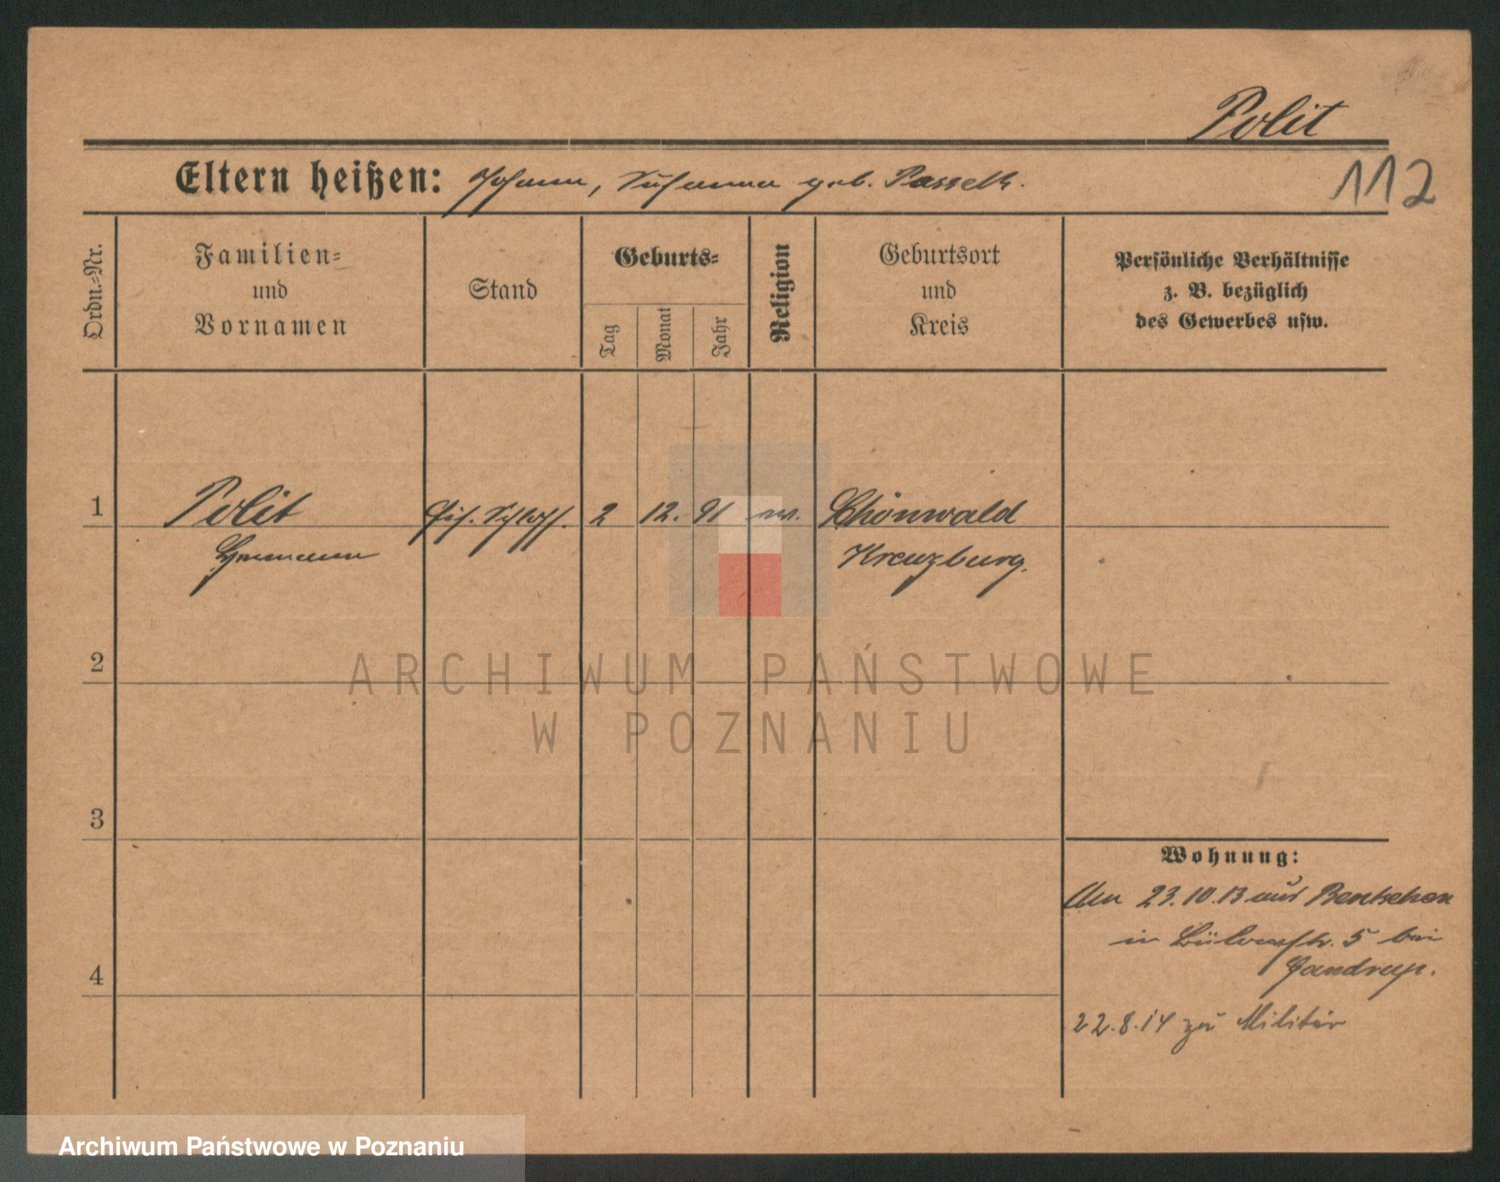 Polit
Eltern heißen: Johann, Susanna geb. Passek.
112
Ordn.-Nr.
Familien-
und
Vornamen
Stand
Geburts-
Tag
Monat
Jahr
Religion
Geburtsort
und
Kreis
Persönliche Verhältnisse
z. B. bezüglich
des Gewerbes usw.
1
Polit
Hermann
2 12. 91 ev.
Schönwald
Kreuzburg.
2
3
4
Wohnung:
Am 23.10.13 aus Bentschen
in Bülowstr. 5 bei
22.8.14 zu Militär
ARCHIWUM PAŃSTWOWE
W POZNANIU
Archiwum Państwowe w Poznaniu